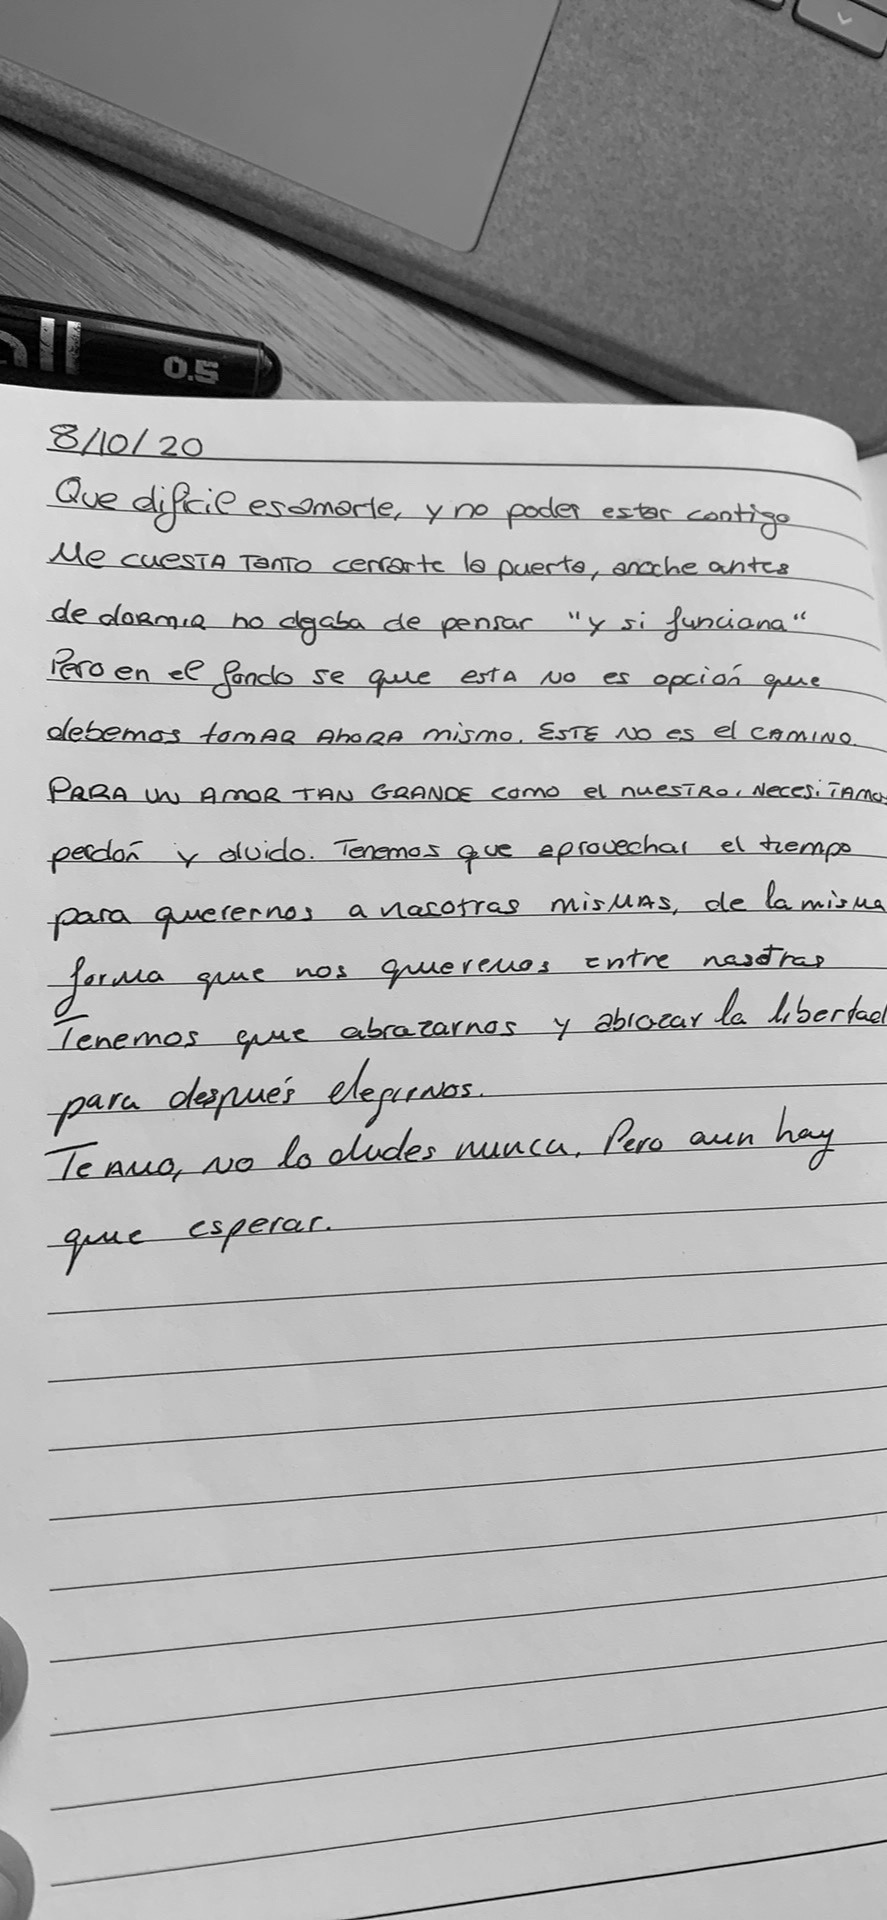 ll
0.5
8/10/20
Que dificil es amarte, y no poder estar contigo
Me cuesta tanto cerrarte la puerta, anoche antes
de dormir no dejaba de pensar "y si funciona"
Pero en el fondo se que esta no es opción que
debemos tomar ahora mismo. ESTE NO es el CAMINO
PARA UN AMOR TAN GRANDE como el nuestro, Necesitamos
perdón y olvido. Tenemos que aprovechar el tiempo
para querernos a nosotras mismas, de la misma
forma que nos queremos entre nosotras
Tenemos que abrazarnos y abrazar la libertad
para después elegirnos.
Te amo, no lo dudes nunca. Pero aun hay
que esperar.